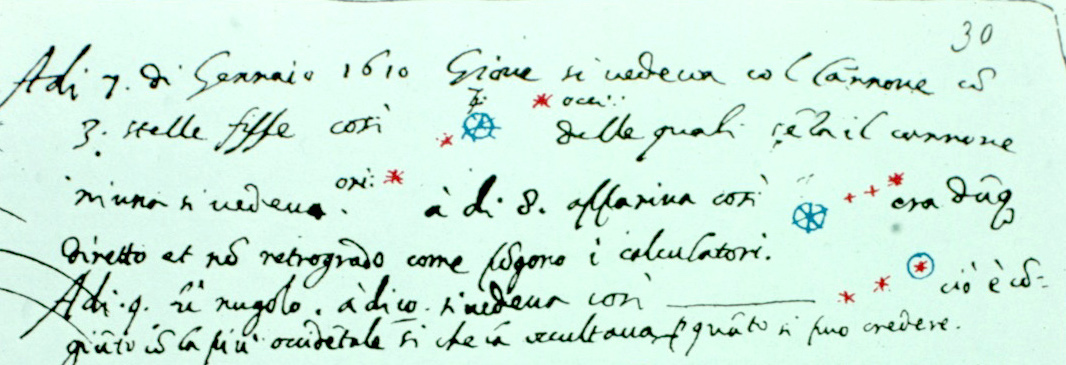 30
Adi 7. di Gennaio 1610 Giove si vedeva col Cannone cō
3. stelle fisse così ori: occi: delle quali sēza il cannone
niuna si vedeva. à dì 8. appariva così era dūq
diretto et nō retrogrado come pōgono i calculatori.
Adi. 9. fù nugolo. à dì 10. si vedeva così ciò è cō-
giūto cō la più occidētale sì che la occultava p quāto si può credere.